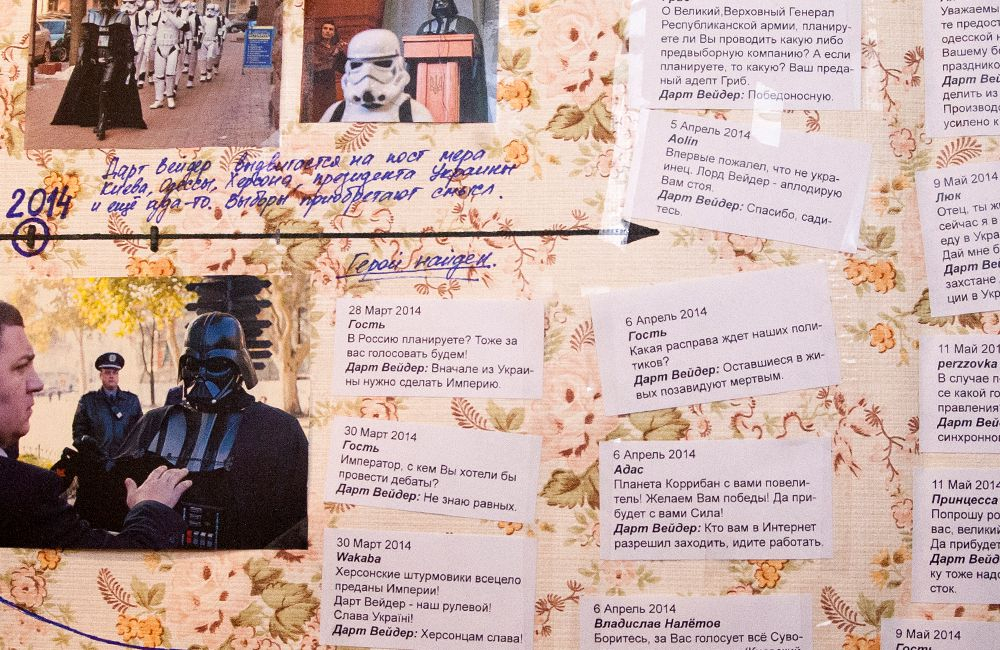 О Великий,Верховный Генерал
Республиканской армии, планиру-
ете ли Вы проводить какую либо
предвыборную компанию? А если
планируете, то какую? Ваш преда-
ный адепт Гриб.
Дарт Вейдер: Победоносную.
5 Апрель 2014
Aolin
Впервые пожалел, что не укра-
инец. Лорд Вейдер - аплодирую
Вам стоя.
Дарт Вейдер: Спасибо, сади-
тесь.
Дарт Вейдер выдвигается на пост мера
Киева, Одессы, Херсона, президента Украины
и ещё куда-то. Выборы приобретают смысл.
2014
Герой найден.
28 Март 2014
Гость
В Россию планируете? Тоже за
вас голосовать будем!
Дарт Вейдер: Вначале из Украи-
ны нужно сделать Империю.
30 Март 2014
Гость
Император, с кем Вы хотели бы
провести дебаты?
Дарт Вейдер: Не знаю равных.
30 Март 2014
Wakaba
Херсонские штурмовики всецело
преданы Империи!
Дарт Вейдер - наш рулевой!
Слава Україні!
Дарт Вейдер: Херсонцам слава!
6 Апрель 2014
Гость
Какая расправа ждет наших поли-
тиков?
Дарт Вейдер: Оставшиеся в жи-
вых позавидуют мертвым.
6 Апрель 2014
Адас
Планета Коррибан с вами повели-
тель! Желаем Вам победы! Да при-
будет с вами Сила!
Дарт Вейдер: Кто вам в Интернет
разрешил заходить, идите работать.
6 Апрель 2014
Владислав Налётов
Боритесь, за Вас голосует всё Суво-
Уважаемы
те предос
одесской н
Вашему б
праздников
делить из
Производс
усилено к
9 Май 2014
Люк
Отец, ты ж
сейчас я в
еду в Укра
Дай мне б
Дарт Вей
захстане
ции в Укр
11 Май 2014
perzzovka
В случае п
се какой го
правления
Дарт Вей
синхронно
11 Май 2014
Принцесса
Попрошу ро
вас, велики
Да прибудет
Дарт Вейд
ку тоже надо
сток.
9 Май 2014
Гость